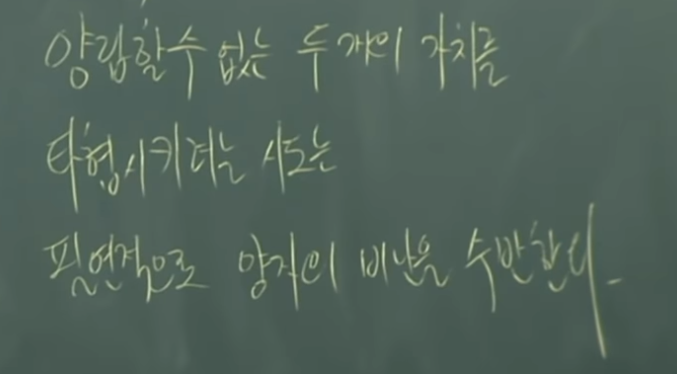 양립할 수 없는 두 개의 가치를
타협시키려는 시도는
필연적으로 양자의 비난을 수반한다.